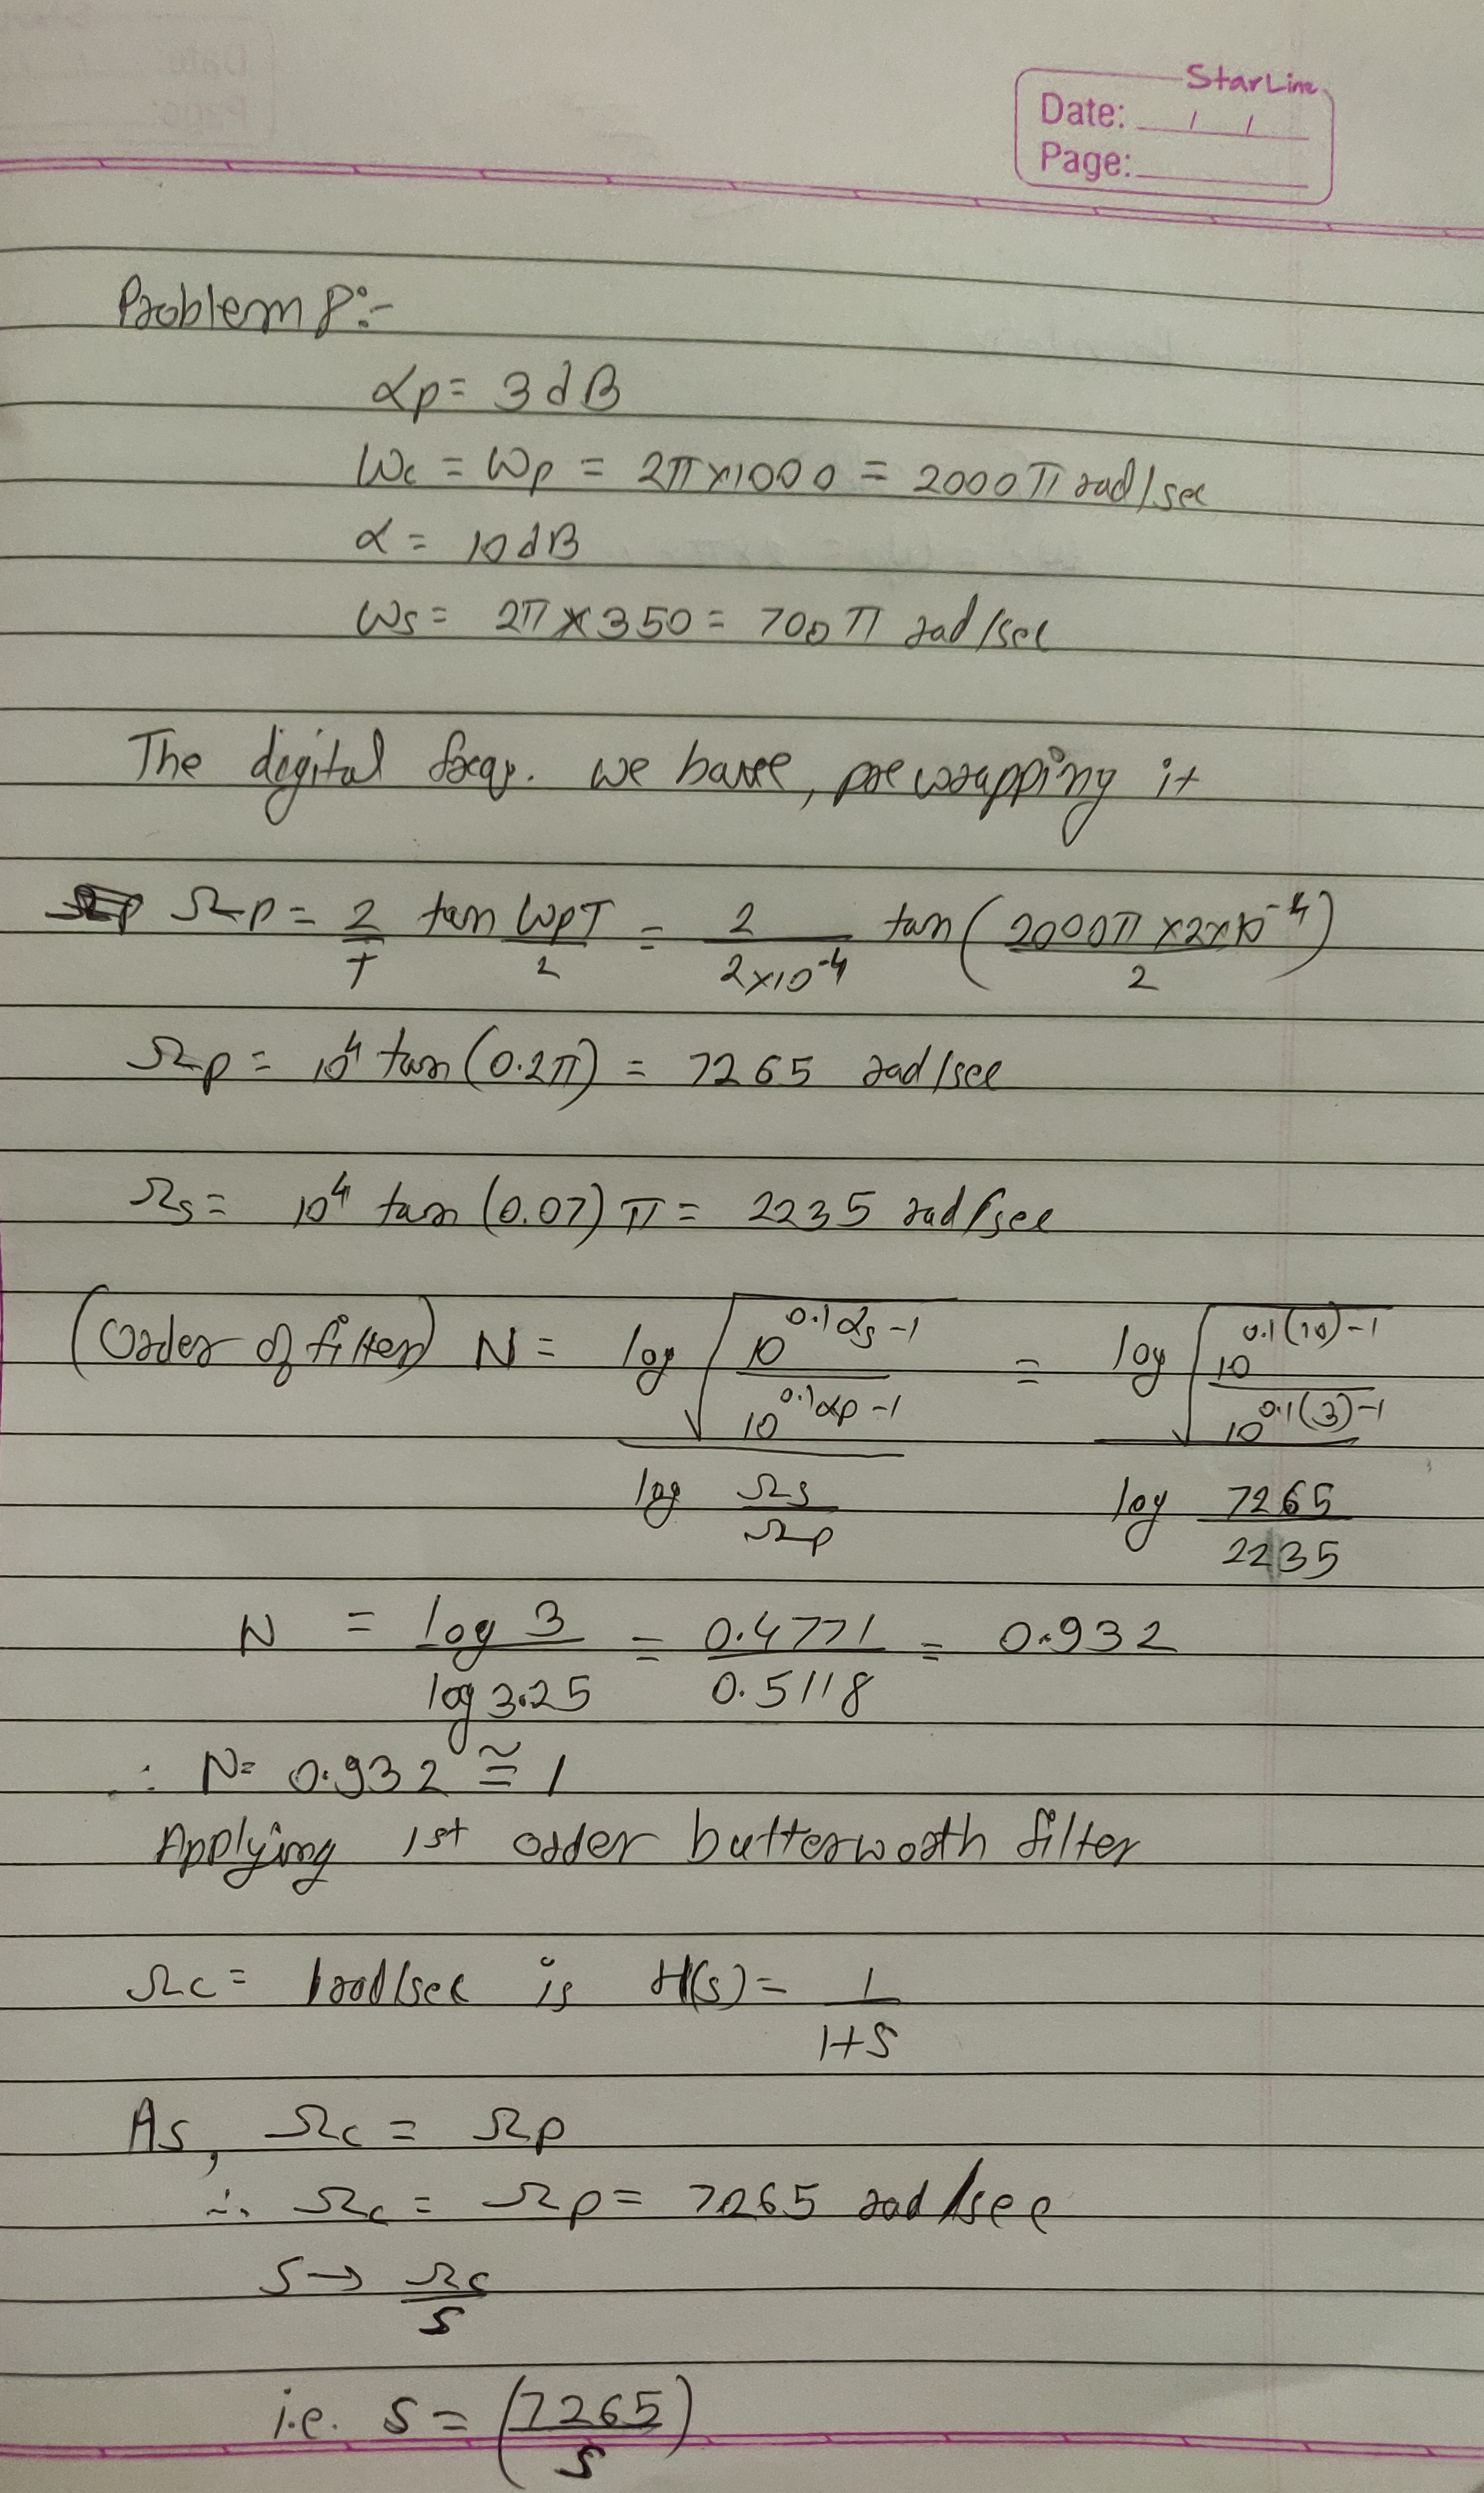 StarLine
Date: / /
Page:
Problem 8:-
αp = 3dB
ωc = ωp = 2π×1000 = 2000π rad/sec
α = 10dB
ωs = 2π×350 = 700π rad/sec
The digital freq. we have, prewrapping it
Ωp = 2/T tan ωpT/2 = 2/(2×10^-4) tan(2000π×2×10^-4/2)
Ωp = 10^4 tan(0.2π) = 7265 rad/sec
Ωs = 10^4 tan(0.07)π = 2235 rad/sec
(Order of filter) N = log √((10^0.1αs-1)/(10^0.1αp-1)) / log Ωs/Ωp = log √((10^0.1(10)-1)/(10^0.1(3)-1)) / log 7265/2235
N = log 3/log 3.25 = 0.4771/0.5118 = 0.932
∴ N= 0.932 ≅ 1
Applying 1st order butterworth filter
Ωc = 1rad/sec is H(s) = 1/1+S
As, Ωc = Ωp
∴ Ωc = Ωp = 7265 rad/sec
S → Ωc/S
i.e. S = (7265/S)